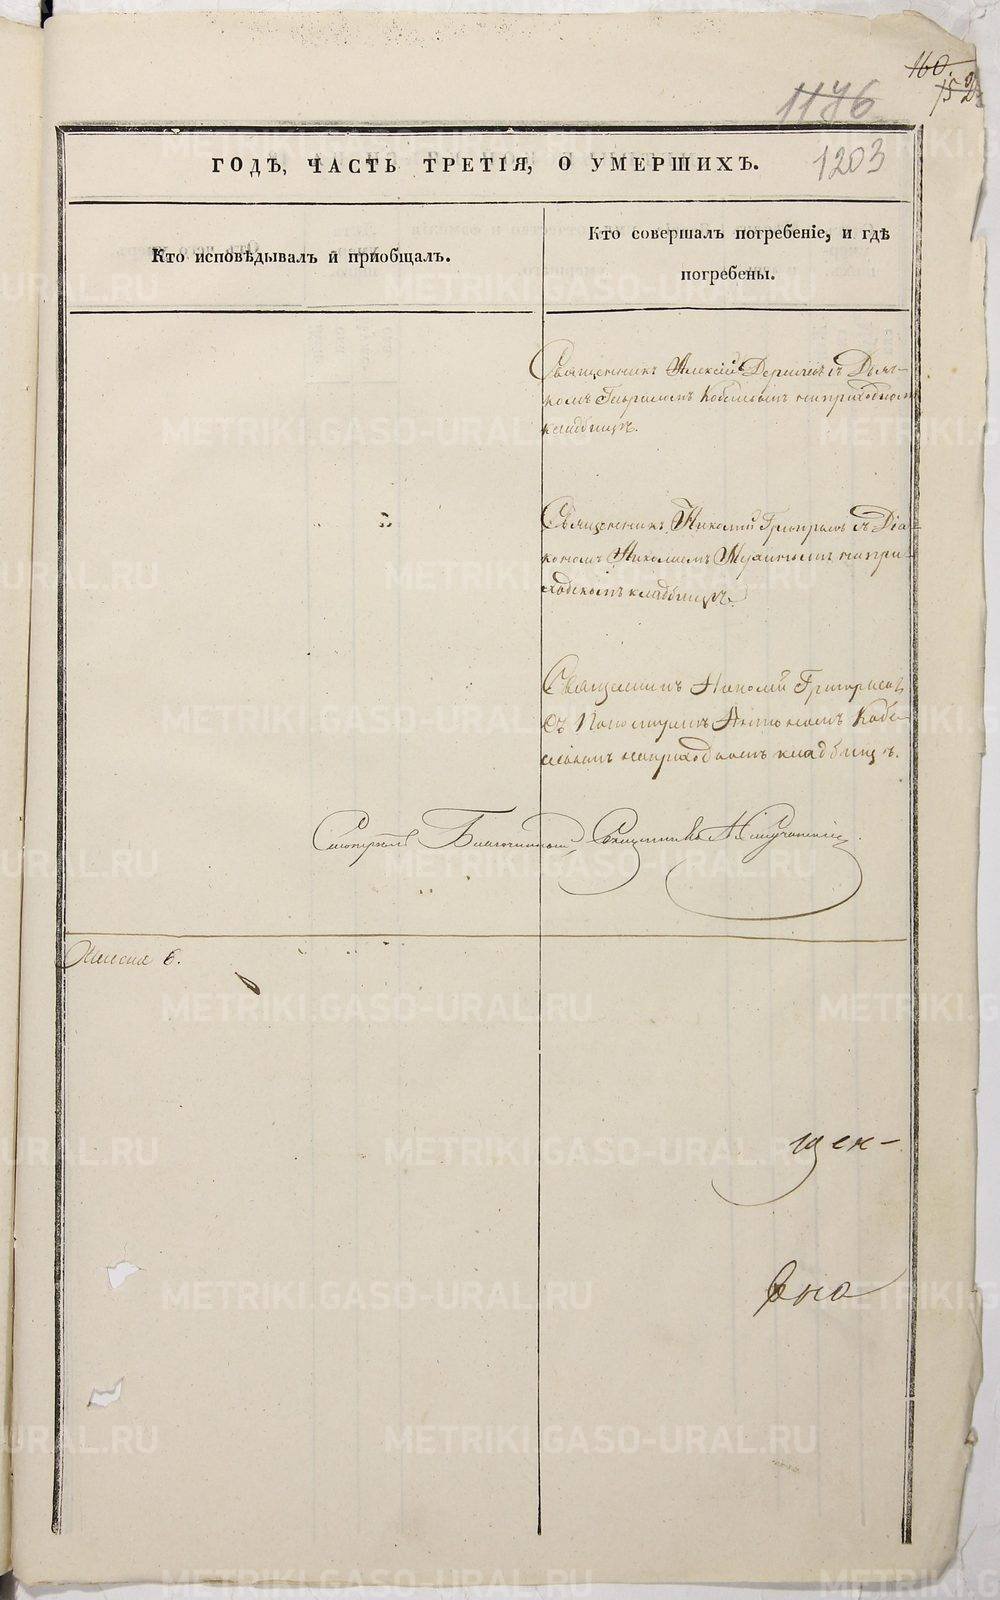 160.
152
1176
1203
ГОДЪ, ЧАСТЬ ТРЕТІЯ, О УМЕРШИХЪ.
Кто исповѣдывалъ и пріобщалъ.
Кто совершалъ погребеніе, и гдѣ
погребены.
Священникъ Алексій съ Дьяч-
комъ Гавріиломъ на приходскомъ
кладбищѣ.
Священникъ Николай Григорьевъ съ Діа-
кономъ Николаемъ на при-
ходскомъ кладбищѣ.
Священникъ Николай Григорьевъ
съ Пономаремъ Антономъ Кобе-
левымъ на приходскомъ кладбищѣ.
Смотрѣлъ Благочинный Священникъ
6.
щен-
METRIKI.GASO-URAL.RU